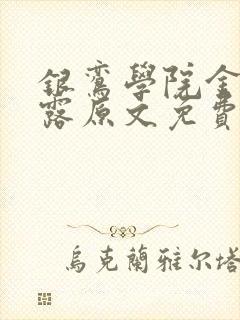 銀鸞學院金
露原文免費
烏克蘭雅尔塔